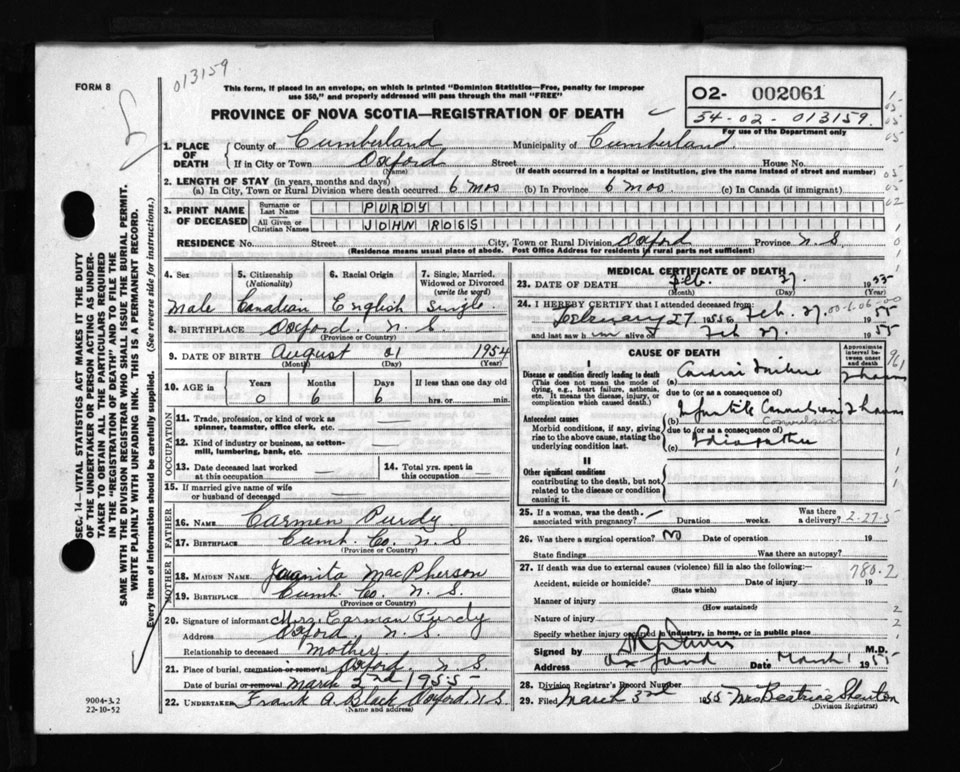 FORM 8
013159
This form, if placed in an envelope, on which is printed "Dominion Statistics—Free, penalty for improper
use $50," and properly addressed will pass through the mail "FREE"
PROVINCE OF NOVA SCOTIA—REGISTRATION OF DEATH
02- 002061
54-02-013159
For use of the Department only
1. PLACE OF DEATH
County of Cumberland Municipality of Cumberland
If in City or Town Oxford Street House No.
(Name) (If death occurred in a hospital or institution, give the name instead of street and number)
2. LENGTH OF STAY (in years, months and days)
(a) In City, Town or Rural Division where death occurred 6 mos (b) In Province 6 mos (c) In Canada (if immigrant)
3. PRINT NAME OF DECEASED
Surname or Last Name PURDY
All Given or Christian Names JOHN ROSS
RESIDENCE No. Street City, Town or Rural Division Oxford Province N.S.
(Residence means usual place of abode. Post Office Address for residents in rural parts not sufficient)
4. Sex
Male
5. Citizenship
(Nationality)
Canadian
6. Racial Origin
English
7. Single, Married,
Widowed or Divorced
(write the word)
Single
8. BIRTHPLACE Oxford. N.S.
(Province or Country)
9. DATE OF BIRTH August 21 1954
(Month) (Day) (Year)
10. AGE in
Years Months Days If less than one day old
0 6 6 hrs. or min.
OCCUPATION
11. Trade, profession, or kind of work as
spinner, teamster, office clerk, etc.
12. Kind of industry or business, as cotton-
mill, lumbering, bank, etc.
13. Date deceased last worked
at this occupation
14. Total yrs. spent in
this occupation
15. If married give name of wife
or husband of deceased
FATHER
16. NAME Carmen Purdy
17. BIRTHPLACE Cumb. Co. N.S
(Province or Country)
MOTHER
18. MAIDEN NAME Juanita MacPherson
19. BIRTHPLACE Cumb. Co. N.S.
(Province or Country)
20. Signature of informant Mrs. Carman Purdy
Address Oxford, N.S.
Relationship to deceased Mother
21. Place of burial, cremation or removal Oxford. N.S
Date of burial or removal March 2nd 1955
22. UNDERTAKER Frank A. Black Oxford, N.S.
(Name and address)
MEDICAL CERTIFICATE OF DEATH
23. DATE OF DEATH Feb. 27 1955
(Month) (Day) (Year)
24. I HEREBY CERTIFY that I attended deceased from
February 27 1955 to Feb. 27. 1955
and last saw him alive on Feb 27 1955
CAUSE OF DEATH
Approximate
interval be-
tween onset
and death
I
Disease or condition directly leading to death
(This does not mean the mode of
dying, e.g., heart failure, asthenia,
etc. It means the disease, injury, or
complication which caused death.)
(a) Cardiac Failure 2 hours
due to (or as a consequence of)
Antecedent causes
Morbid conditions, if any, giving
rise to the above cause, stating the
underlying condition last.
(b) Infantile Convulsions 2 hours
Convulsions
due to (or as a consequence of)
(c) Idiopathic
II
Other significant conditions
contributing to the death, but not
related to the disease or condition
causing it.
25. If a woman, was the death
associated with pregnancy? Duration weeks. Was there
a delivery? 2-27-5
26. Was there a surgical operation? No Date of operation 19
State findings Was there an autopsy?
27. If death was due to external causes (violence) fill in also the following:—
780.2
Accident, suicide or homicide? Date of injury 19
(State which)
Manner of injury
(How sustained)
Nature of injury
Specify whether injury occurred in industry, in home, or in public place
Signed by M.D.
Address Oxford Date March 1 1955
28. Division Registrar's Record Number
29. Filed March 3rd 1955 Mrs Beatrice Shenton
(Division Registrar)
SEC. 14—VITAL STATISTICS ACT MAKES IT THE DUTY
OF THE UNDERTAKER OR PERSON ACTING AS UNDER-
TAKER TO OBTAIN ALL THE PARTICULARS REQUIRED
IN THE "REGISTRATION OF DEATH" AND TO FILE THE
SAME WITH THE DIVISION REGISTRAR WHO SHALL ISSUE THE BURIAL PERMIT.
WRITE PLAINLY WITH UNFADING INK. THIS IS A PERMANENT RECORD.
Every item of information should be carefully supplied. (See reverse side for instructions.)
9004-3.2
22-10-52